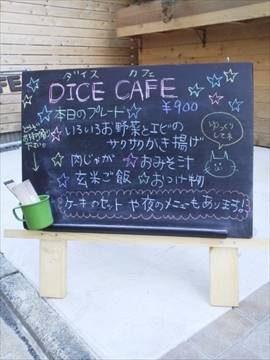 ダイス カフェ
DICE CAFE
☆本日のプレート☆ ¥900
☆いろいろお野菜とエビの
サクサクかき揚げ
☆肉じゃが ☆おみそ汁
☆玄米ご飯 ☆おつけ物
ケーキのセットや夜のメニューもあります!
ゆっくり
してネ